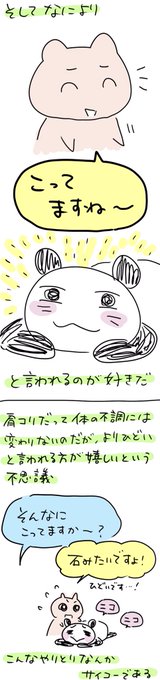 そして なにより
こって
ますね〜
と言われるのが好きだ
肩コリだって体の不調には
変わりないのだが、よりひどい
と言われる方が嬉しいという
不思議
そんなに
こってますか〜?
石みたいですよ!
ひどいです…!
ニコ
ニコ
こんなやりとりなんか
サイコーである